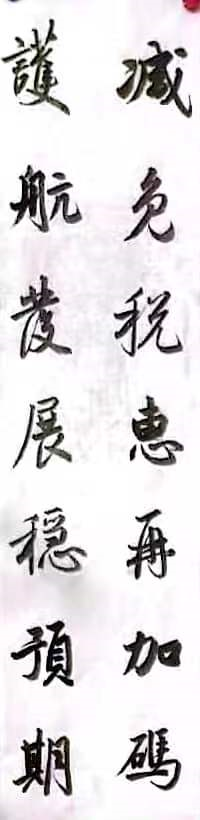 減免税惠再加碼
護航發展穩預期